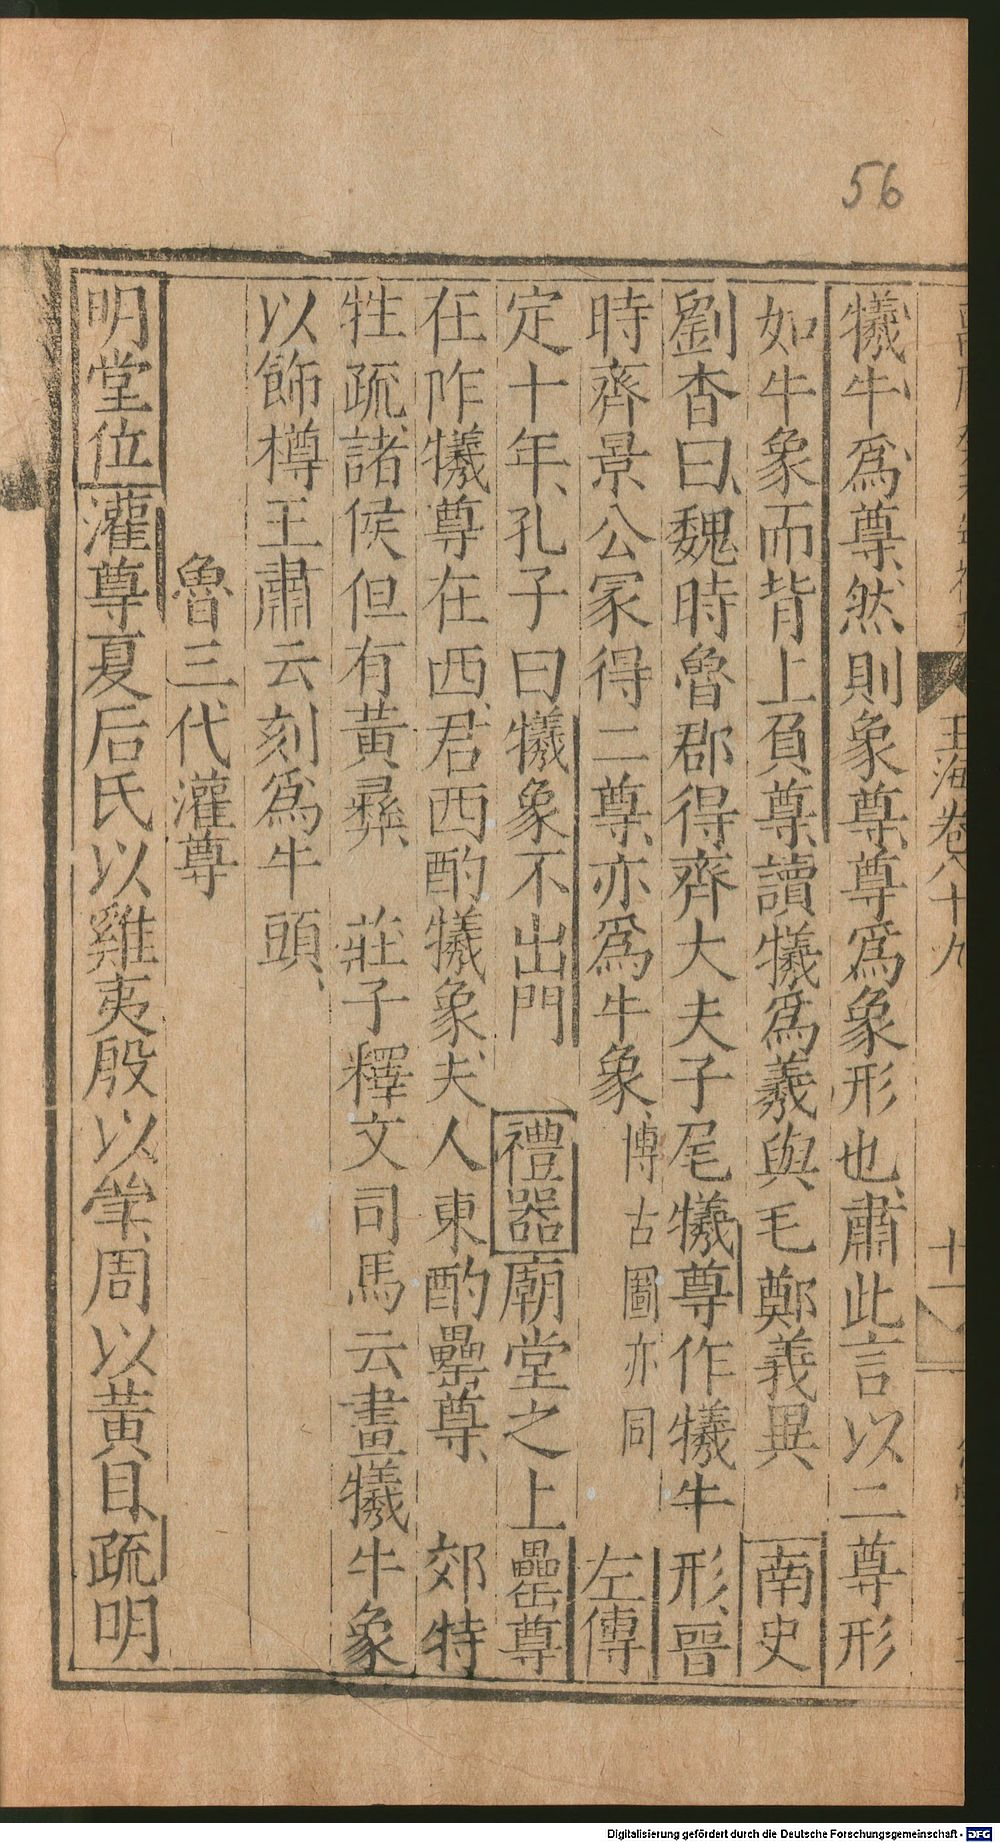 56
玉海卷八十九
十一
犧牛爲尊然則象尊尊爲象形也肅此言以二尊形
如牛象而背上負尊讀犧爲羲與毛鄭義異 南史
劉杳曰魏時魯郡得齊大夫子尾犧尊作犧牛形晉
時齊景公冢得二尊亦爲牛象博古圖亦同 左傳
定十年孔子曰犧象不出門 禮器廟堂之上罍尊
在阼犧尊在西君西酌犧象夫人東酌罍尊 郊特
牲疏諸侯但有黃彞 莊子釋文司馬云畫犧牛象
以飾樽王肅云刻爲牛頭
魯三代灌尊
明堂位灌尊夏后氏以雞夷殷以斝周以黃目疏明
Digitalisierung gefördert durch die Deutsche Forschungsgemeinschaft - DFG